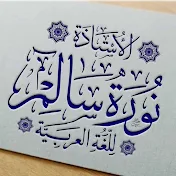 الأستاذة
نورة سالم
للغة العربية